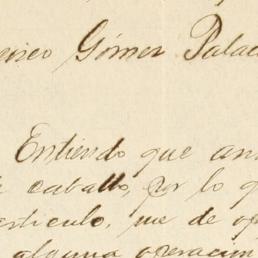 Gómez Palac
Entiendo que an
caballo, por lo q
articulo, me de
alguna operacion